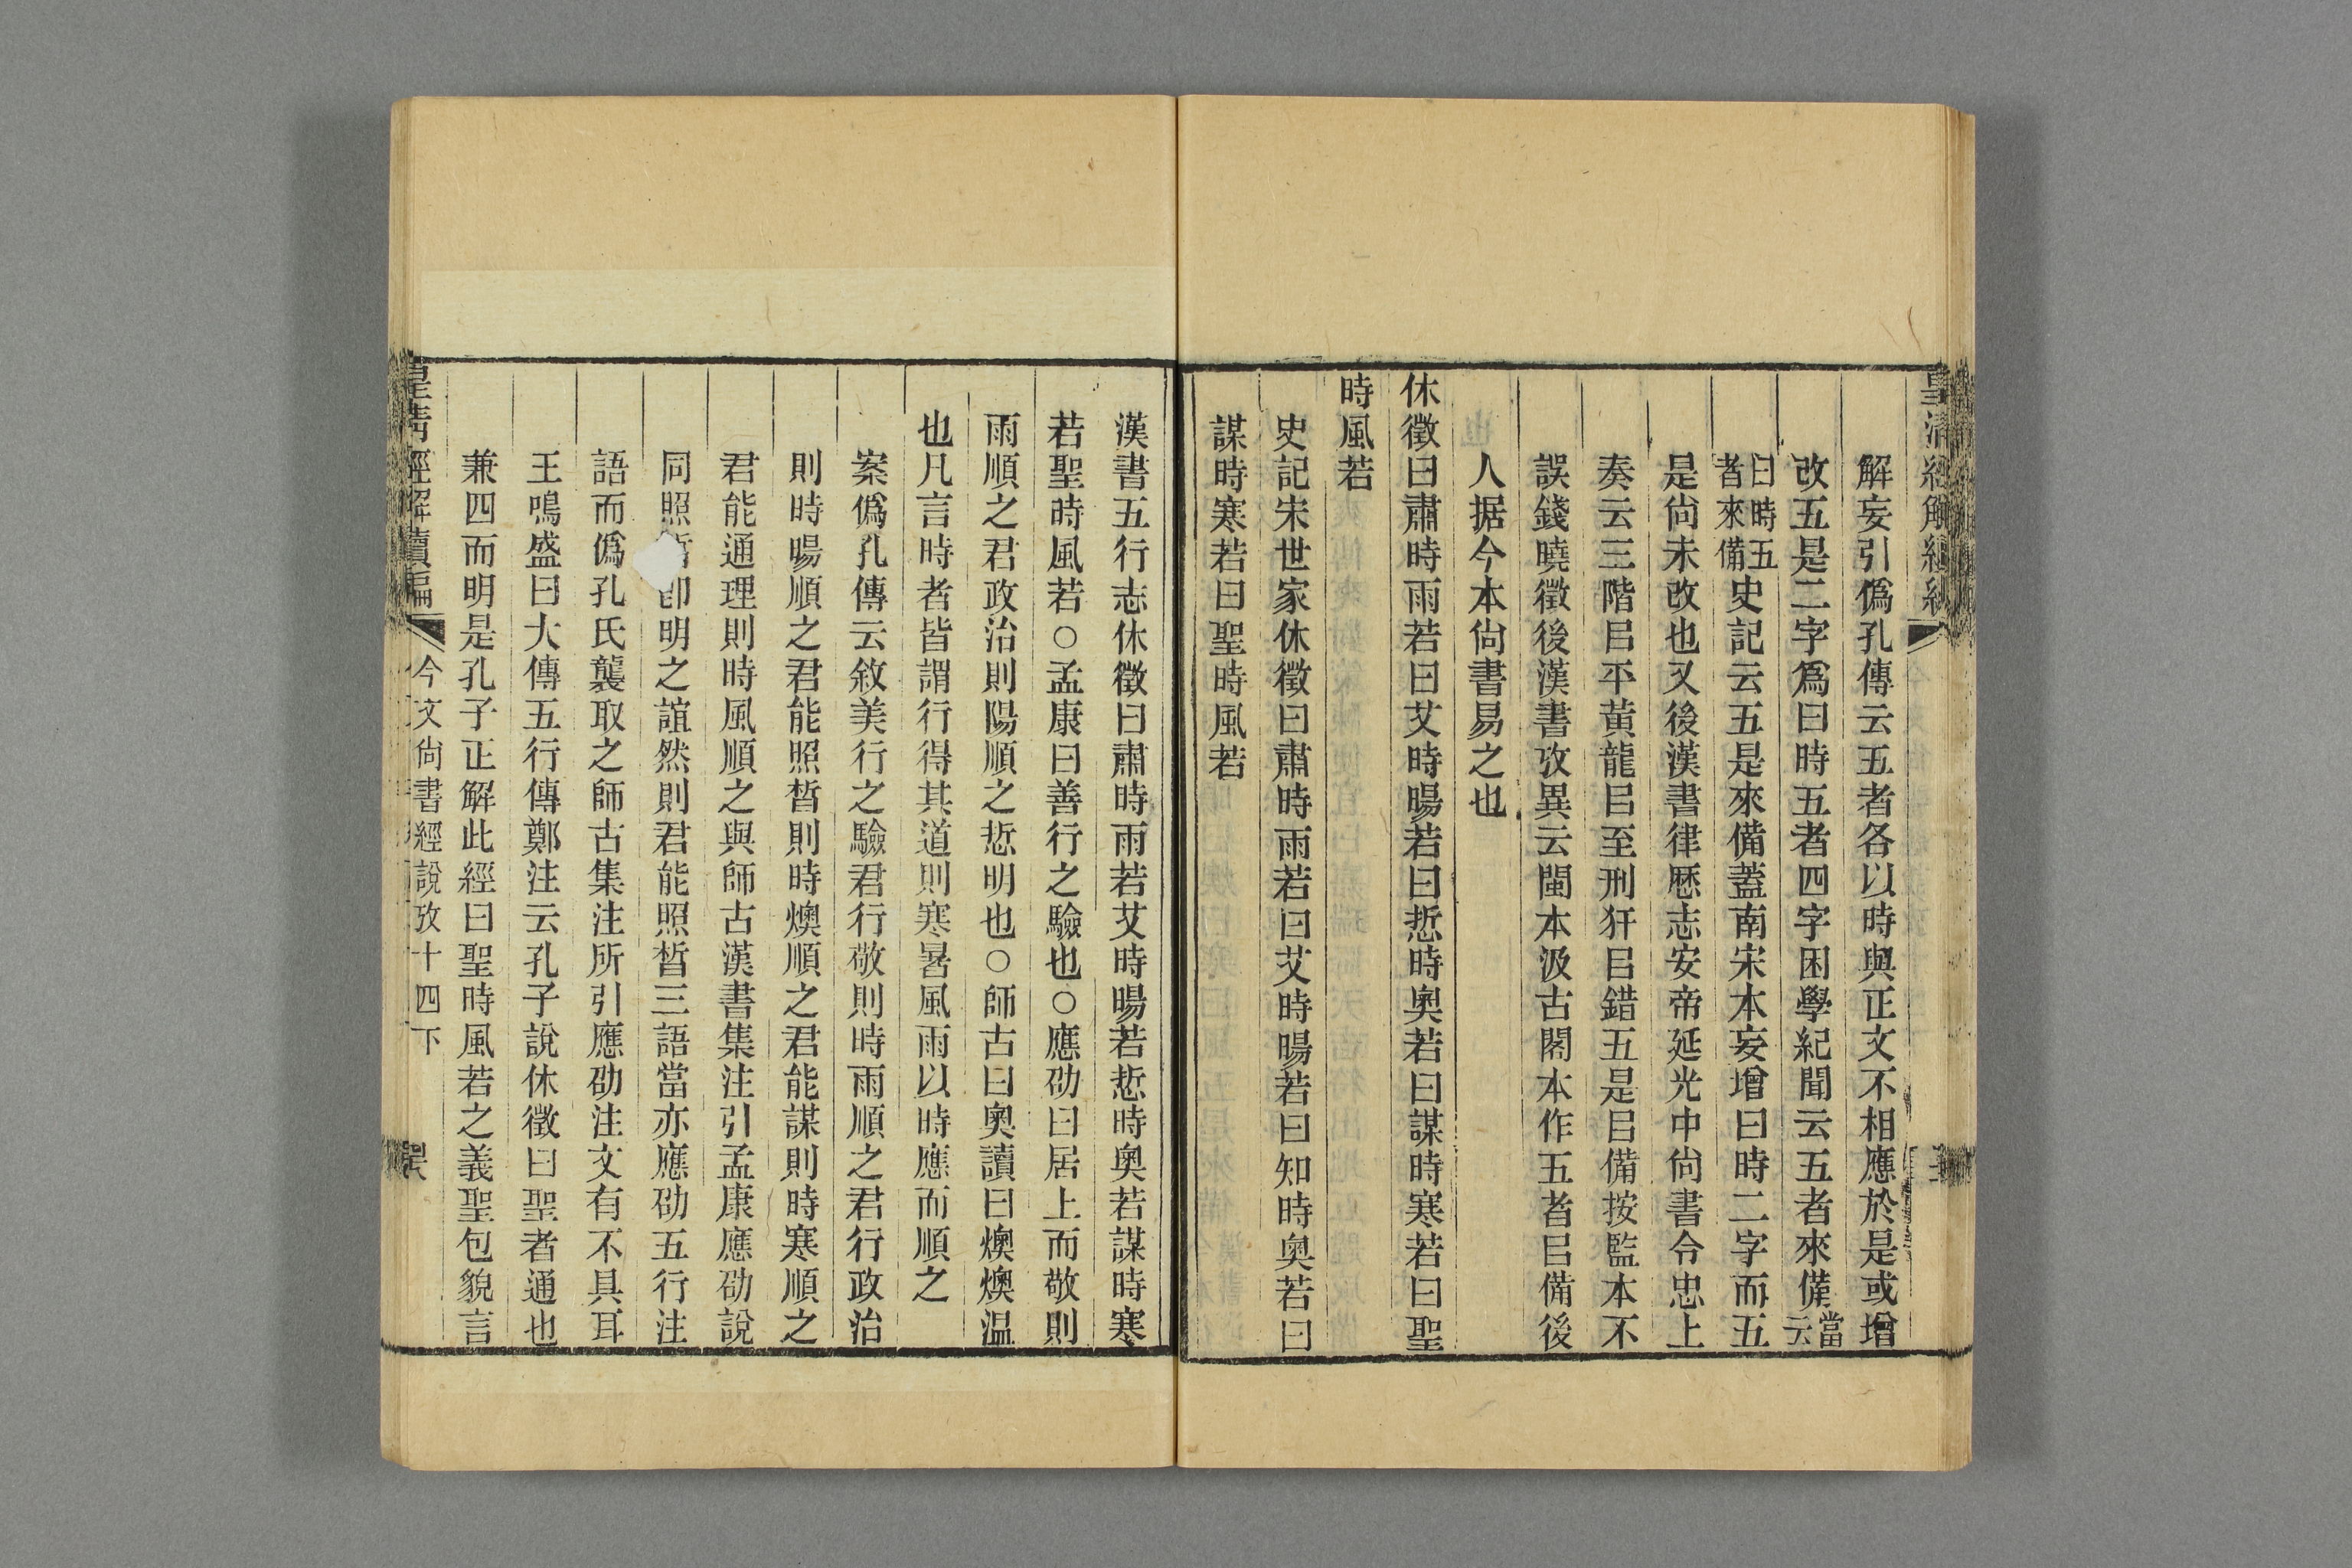 解妄引僞孔傳云五者各以時與正文不相應於是或增
改五是二字爲曰時五者四字困學紀聞云五者來備當云
曰時五者來備史記云五是來備蓋南宋本妄增曰時二字而五
是尙未改也又後漢書律厯志安帝延光中尙書令忠上
奏云三階㠯平黃龍㠯至刑犴㠯錯五是㠯備按監本不
誤錢曉徵後漢書攷異云閩本汲古閣本作五者㠯備後
人据今本尙書易之也
休徵曰肅時雨若曰艾時暘若曰悊時奥若曰謀時寒若曰聖
時風若
史記宋世家休徵曰肅時雨若曰艾時暘若曰知時奥若曰
謀時寒若曰聖時風若
漢書五行志休徵曰肅時雨若艾時暘若悊時奥若謀時寒
若聖時風若○孟康曰善行之驗也○應劭曰居上而敬則
雨順之君政治則陽順之悊明也○師古曰奥讀曰燠燠溫
也凡言時者皆謂行得其道則寒暑風雨以時應而順之
案僞孔傳云敘美行之驗君行敬則時雨順之君行政治
則時暘順之君能照晳則時燠順之君能謀則時寒順之
君能通理則時風順之與師古漢書集注引孟康應劭說
同照卽明之誼然則君能照晳三語當亦應劭五行注
語而僞孔氏襲取之師古集注所引應劭注文有不具耳
王鳴盛曰大傳五行傳鄭注云孔子說休徵曰聖者通也
兼四而明是孔子正解此經曰聖時風若之義聖包貌言
皇清經解續編
今文尙書經說攷十四下